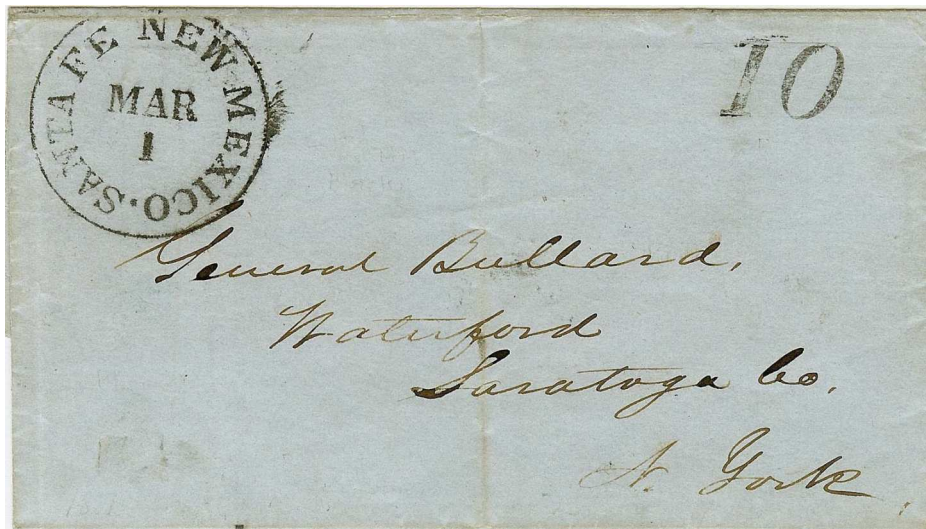 SANTA FE NEW MEXICO.
MAR
1
10
General Bullard.
Waterford
Saratoga Co.
N. York